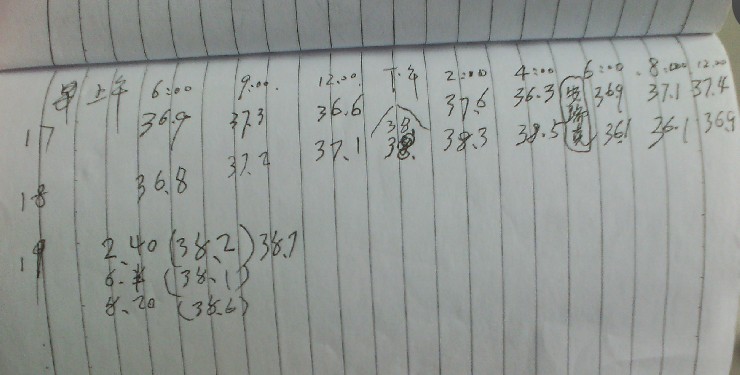 上午 6:00 9:00 12:00 下午 2:00 4:00 6:00 8:00 12:00
17 36.9 37.3 36.6 38 37.6 36.3 369 37.1 37.4
18 36.8 37.2 37.1 38. 38.3 38.5 36.1 36.1 369
19 2.40 (38.2) 38.1
(38.1)
8.20 (38.6)